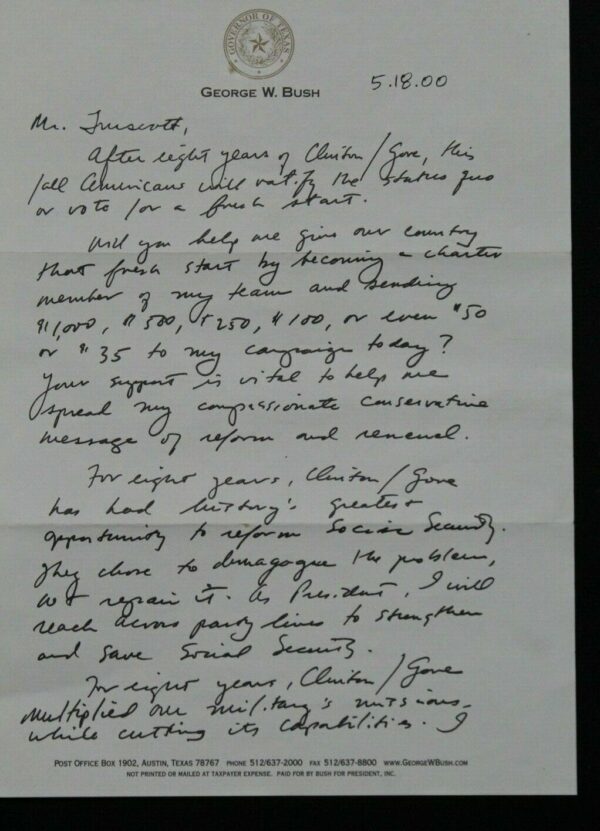 GOVERNOR OF TEXAS
GEORGE W. BUSH
5.18.00
Mr. Truscott,
After eight years of Clinton/Gore, this
fall Americans will ratify the status quo
or vote for a fresh start.
Will you help me give our country
that fresh start by becoming a charter
member of my team and sending
$1,000, $500, $250, $100, or even $50
or $35 to my campaign today?
Your support is vital to help me
spread my compassionate conservative
message of reform and renewal.
For eight years, Clinton/Gore
has had history's greatest
opportunity to reform Social Security.
They chose to demagogue the problem,
not repair it. As President, I will
reach across party lines to strengthen
and save Social Security.
For eight years, Clinton/Gore
multiplied our military's missions
while cutting its capabilities. I
POST OFFICE BOX 1902, AUSTIN, TEXAS 78767 PHONE 512/637-2000 FAX 512/637-8800 WWW.GEORGEWBUSH.COM
NOT PRINTED OR MAILED AT TAXPAYER EXPENSE. PAID FOR BY BUSH FOR PRESIDENT, INC.